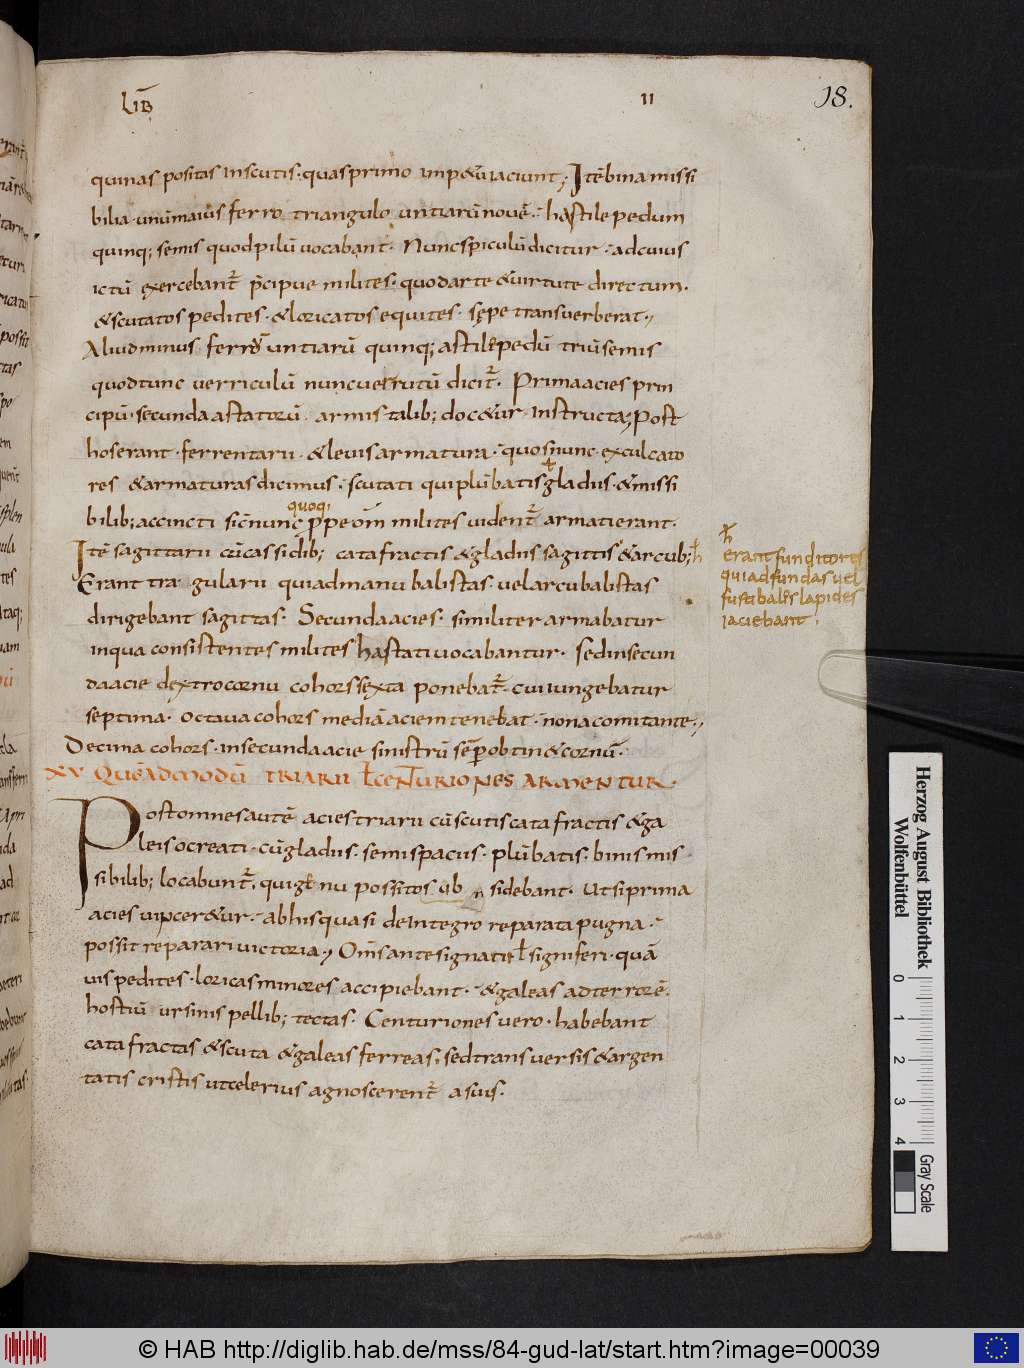 LIB̄ II 18.
quinas positas inscutis. quas primo impetū iaciunt; Itē bina missi
bilia. unū maius ferro triangulo untiarū nouē. hastile pedum
quinq; semis quod pilū uocabant. Nunc spiculū dicitur. ad cuius
ictū exercebant̃ p̄cipue milites. quod arte & uirtute directum.
& scutatos pedites. & loricatos equites. sępe transuerberat.
Aliud minus ferro untiarū quinq; astile pedū triū semis
quod tunc uerriculū nunc uerrutū dicit̃. Prima acies prin
cipū. secunda astatorū. armis talib; doc&ur instructa; Post
hos erant. ferrentarii. & leuis armatura. quos nunc. exculcato
res & armaturas dicimus. scutati qui plūbatis gladiis. & missi
bilib; accincti sic̄ nunc p̄pe om̄ milites uident̃ armati erant.
quoq;
Itē sagittarii cū cassidib; catafractis & gladiis sagittis & arcub; h̄
Erant tra gularii qui ad manu balistas. uel arcubalistas
dirigebant sagittas. Secunda acies. similiter armabatur
in qua consistentes milites hastati uocabantur. Sed in secun
da acie dextro cornu cohors sexta ponebat̃. cui iungebatur
septima. octaua cohors mediā aciem tenebat. nona comitante.,
Decima cohors. in secunda acie sinistrū sēp obtin& cornū.
XV QUĒADMODŪ TRIARII ł CENTURIONES ARMENTUR.
Post omnes autē acies triarii cū scutis catafractis & ga
leis ocreati. cū gladiis. semispaciis. plūbatis. binis mis
sibilib; locabunt̃. qui genu possitos ub sidebant. Ut si prima
acies uincer&ur. ab his quasi deintegro reparata pugna.
possit reparari uictoria., Om̄s antesignati ł signiferi. quā
uis pedites. loricas minores accipiebant. & galeas ad terrorē.
hostiū ursinis pellib; tectas. Centuriones uero. habebant
catafractas & scuta & galeas ferreas, sed transuersis & argen
tatis cristis ut celerius agnoscerent̃ a suis.
h̄
erant funditores
qui ad fundas uel
fustibales lapides
iaciebant.
Herzog August Bibliothek
Wolfenbüttel
0 1 2 3 4
Gray Scale
© HAB http://diglib.hab.de/mss/84-gud-lat/start.htm?image=00039